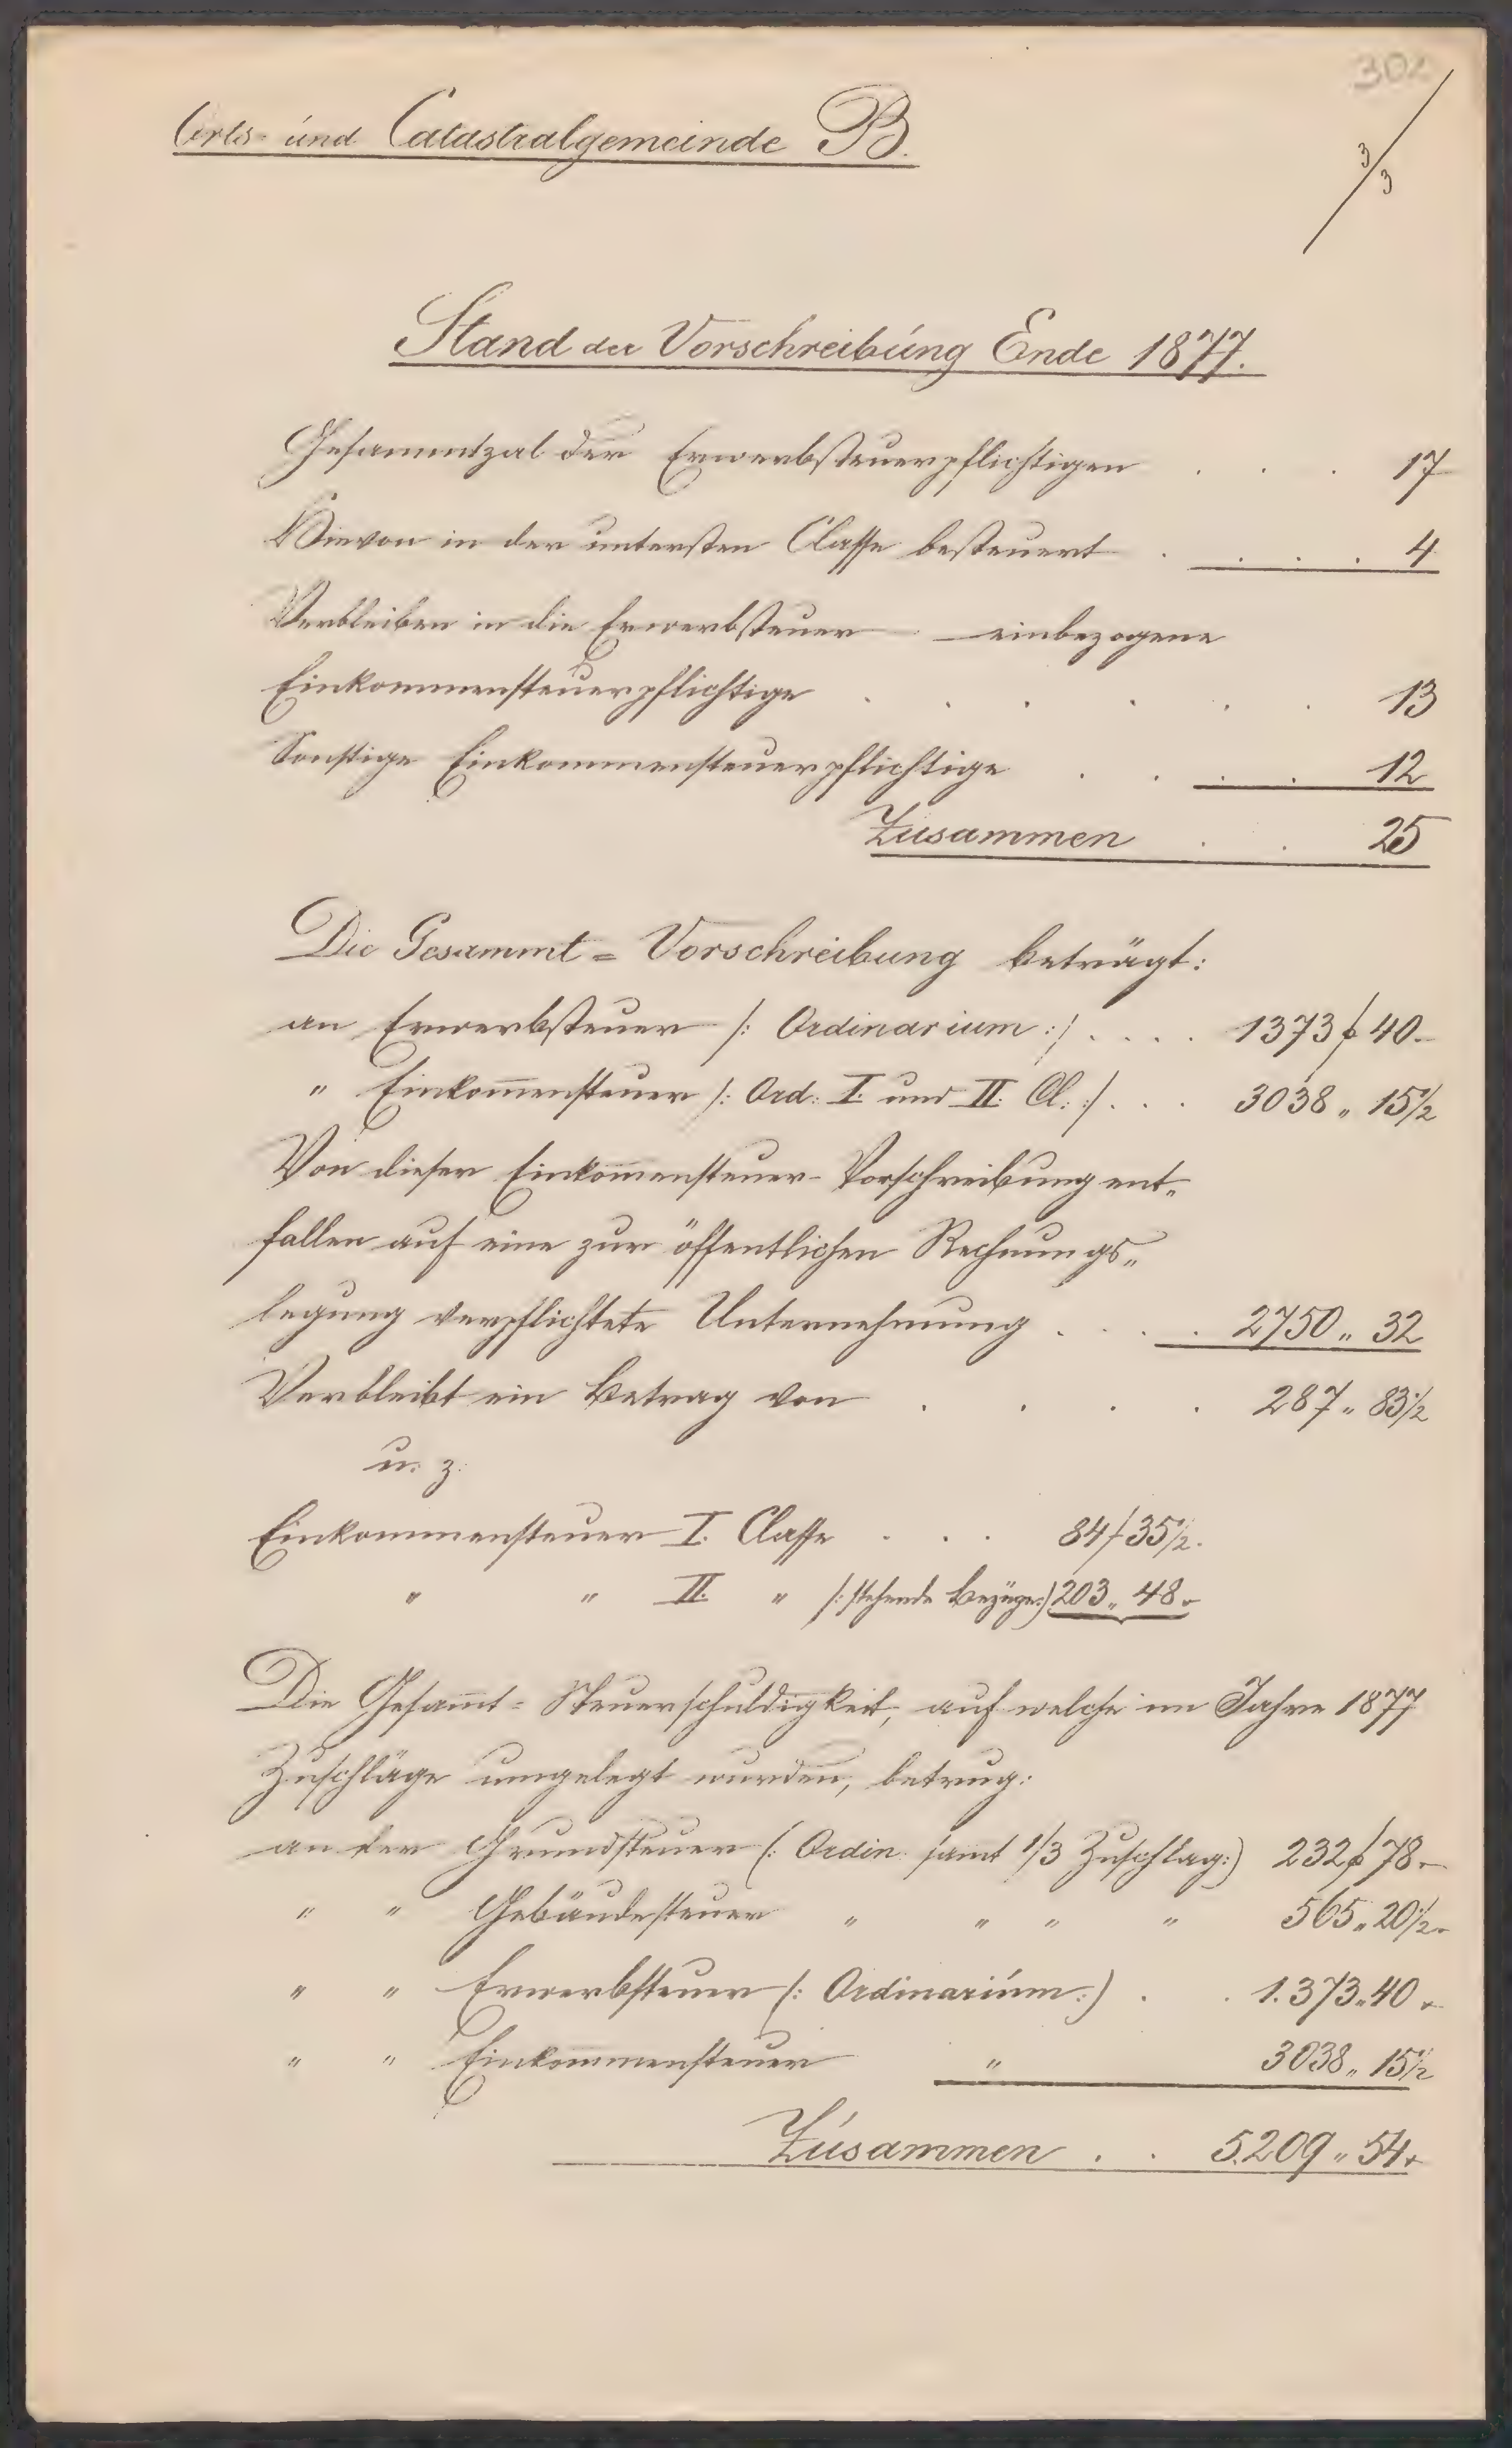 302
Orts- und Catastralgemeinde B.
3/3
Stand der Vorschreibung Ende 1877.
Gesammtzal der Erwerbsteuerpflichtigen . . . 17
Hievon in der untersten Classe besteuert . . . . 4
Verbleiben in die Erwerbsteuer einbezogene
Einkommensteuerpflichtige . . . . . . 13
Sonstige Einkommensteuerpflichtige . . . . 12
Zusammen . . 25
Die Gesammt=Vorschreibung beträgt:
an Erwerbsteuer /: Ordinarium :/ . . . . 1373 f 40.-
" Einkom̄ensteuer /: Ord: I. und II. Cl: :/ . . . 3038 „ 15½
Von dieser Einkom̄ensteuer-Vorschreibung ent„
fallen auf eine zur öffentlichen Rechnungs„
legung verpflichtete Unternehmung . . . 2750 „ 32
Verbleibt ein Betrag von . . . . 287 „ 83½
u. z.
Einkommensteuer I. Classe . . . 84 f 35½.
" " II. " /: stehende Bezüge :/ 203 „ 48.-
Die Gesam̄t=Steuerschuldigkeit, auf welche im Jahre 1877
Zuschläge umgelegt wurden, betrug:
an der Grundsteuer (: Ordin. samt 1/3 Zuschlag :) 232 f 78.-
" " Gebäudesteuer " " " " 565 „ 20½.
" " Erwerbsteuer (: Ordinarium :) . . 1.373 „ 40.-
" " Einkommensteuer " 3038 „ 15½
Zusammen . . 5.209 „ 54.-